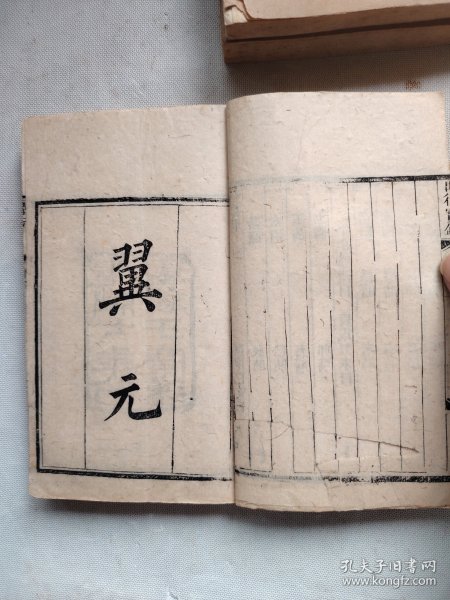 翼元
孔夫子旧书网
www.kongfz.com